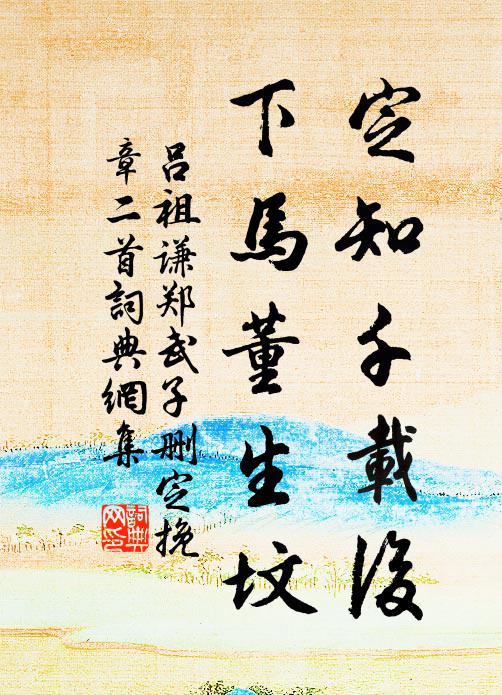 定知千載後
下馬董生墳
吕祖谦郑武子删定挽
章二首詞典網集